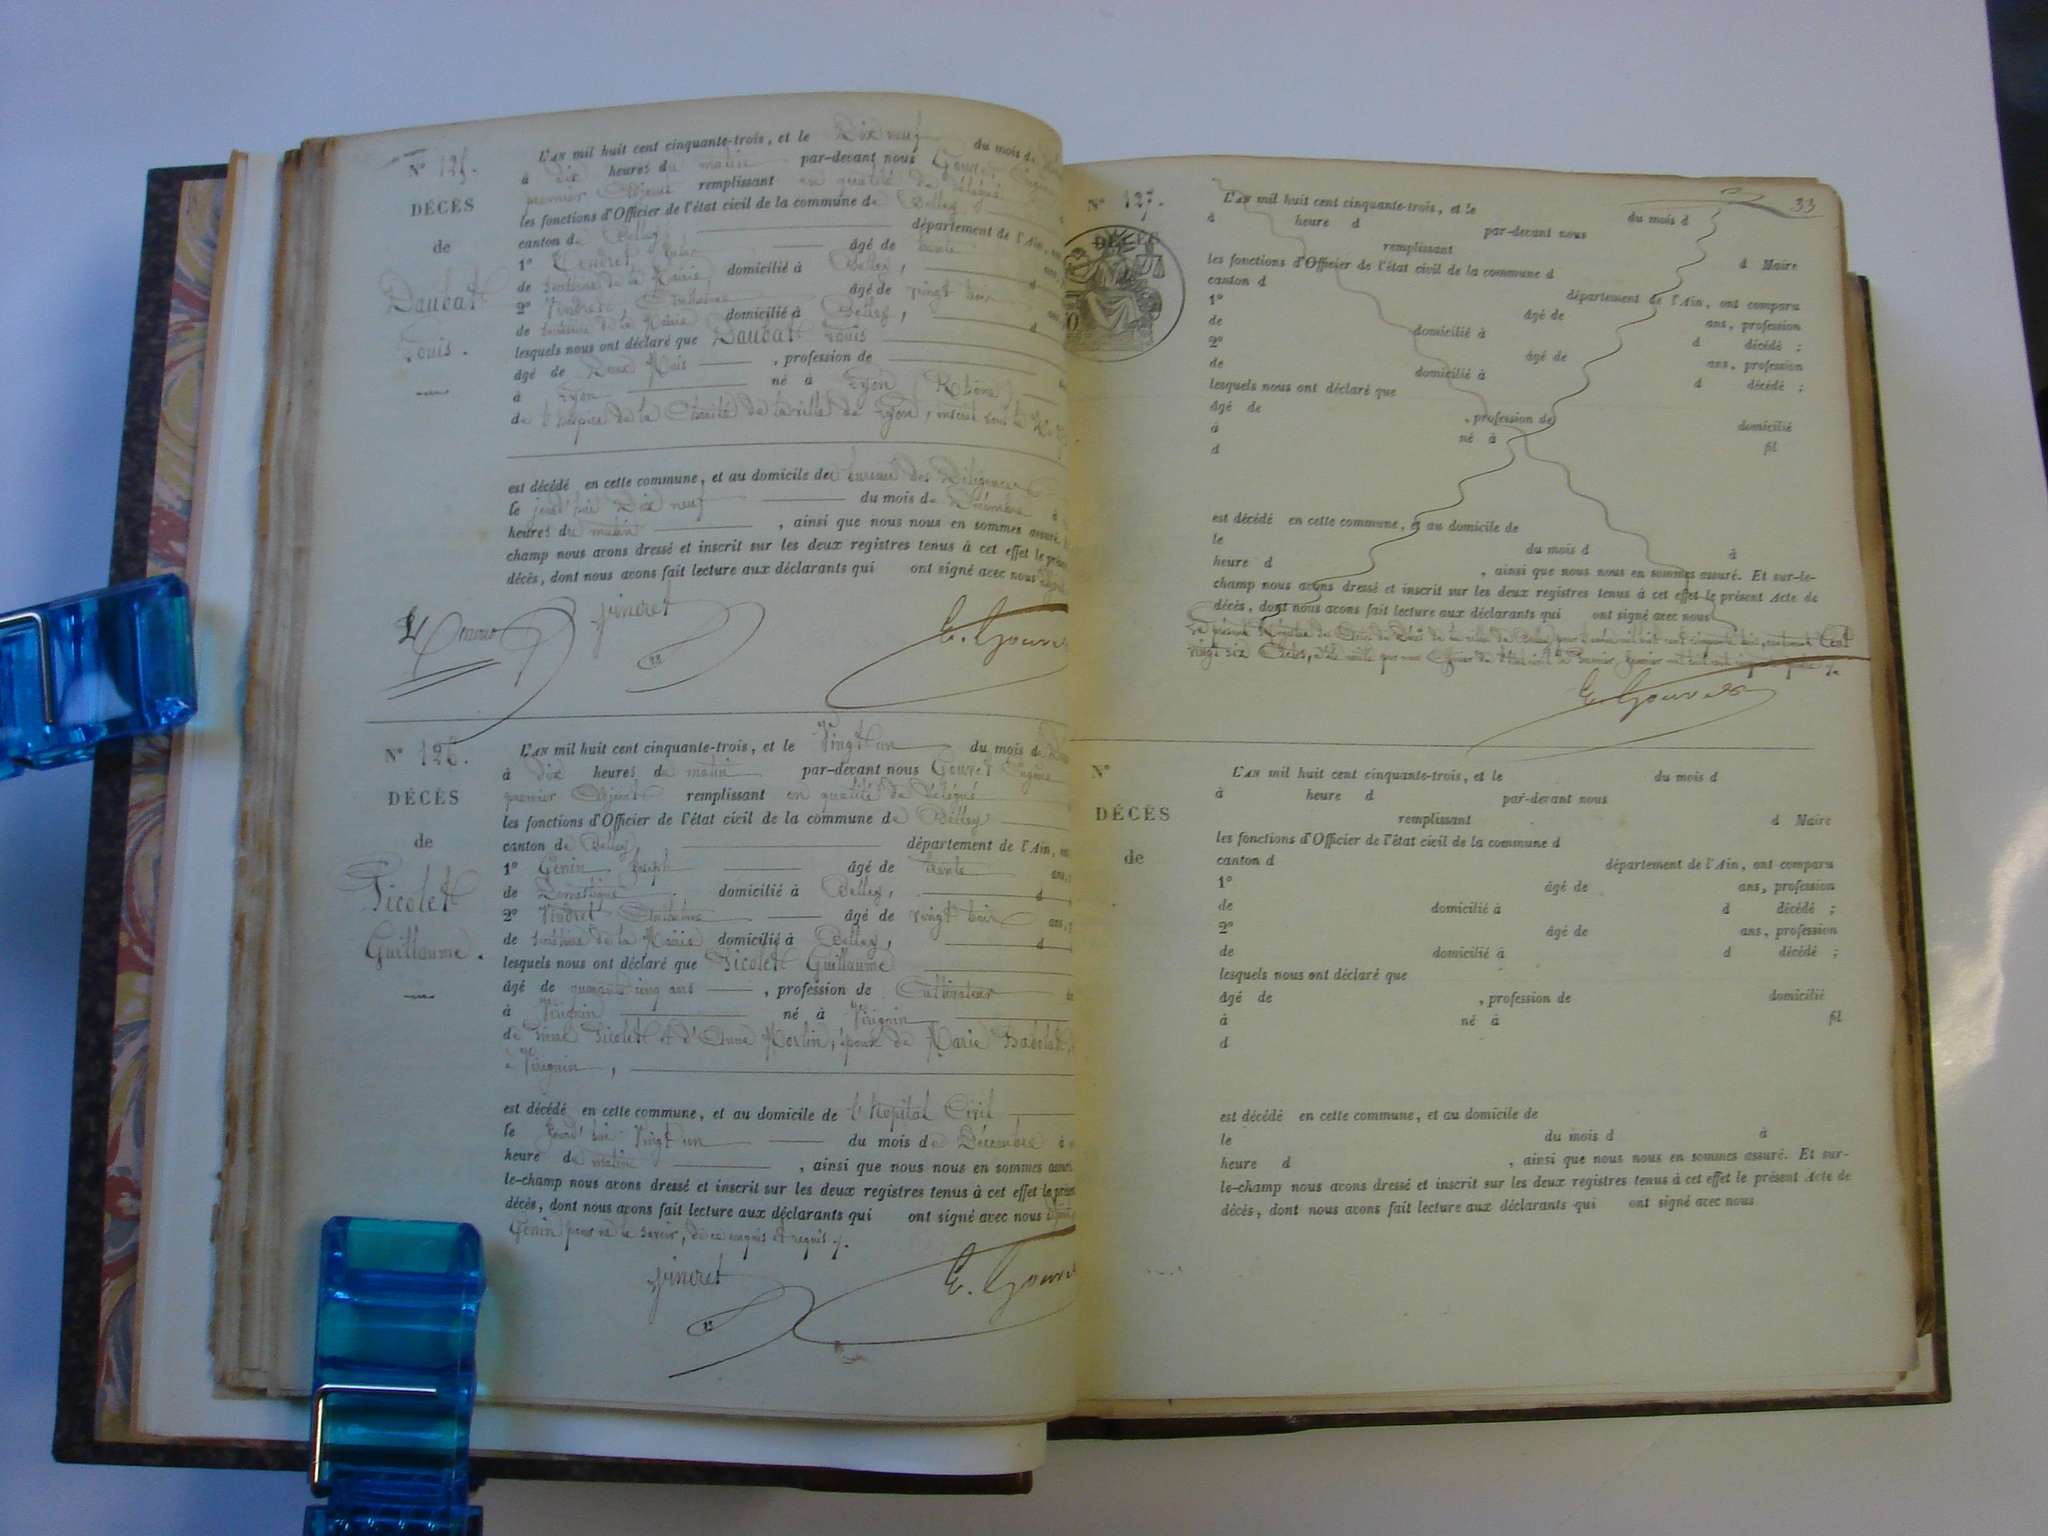 N° 125.
DÉCÈS
de
Daubat
Louis.
L'AN mil huit cent cinquante-trois, et le Dix neuf du mois de
à Dix heures du matin par-devant nous Gouvet Eugène
premier Adjoint remplissant en qualité de Délégué
les fonctions d'Officier de l'état civil de la commune de Belley
canton de Belley, département de l'Ain,
1° âgé de trente
de Secrétaire de la Mairie domicilié à Belley,
2° Vindret, Anthelme âgé de vingt trois
de Secrétaire de la Mairie domicilié à Belley,
lesquels nous ont déclaré que Daubat Louis
âgé de Deux Mois , profession de
à Lyon né à Lyon (Rhône)
de l'hospice de la Charité de la ville de Lyon, inscrit sous le N°
est décédé en cette commune, et au domicile de bureau des Diligences
le jourd'hui Dix neuf du mois de Décembre à
heures du matin , ainsi que nous nous en sommes assuré.
champ nous avons dressé et inscrit sur les deux registres tenus à cet effet le
décès, dont nous avons fait lecture aux déclarants qui ont signé avec nous
Vindret
E. Gouvet
N° 126.
DÉCÈS
de
Picolet
Guillaume.
L'AN mil huit cent cinquante-trois, et le Vingt un du mois de
à Dix heures du matin par-devant nous Gouvet Eugène
premier Adjoint remplissant en qualité de Délégué
les fonctions d'Officier de l'état civil de la commune de Belley
canton de Belley, département de l'Ain,
1° Génin Joseph âgé de trente ans,
de Domestique domicilié à Belley, d
2° Vindret Anthelme âgé de vingt trois ans,
de Secrétaire de la Mairie domicilié à Belley, d
lesquels nous ont déclaré que Picolet Guillaume
âgé de quarante cinq ans , profession de Cultivateur
à Virignin né à Virignin
de Picolet et d'Anne Morlin, époux de Marie
à Virignin,
est décédé en cette commune, et au domicile de l'hopital Civil
le jourd'hui Vingt un du mois de Décembre à
heure du matin , ainsi que nous nous en sommes
le-champ nous avons dressé et inscrit sur les deux registres tenus à cet effet le
décès, dont nous avons fait lecture aux déclarants qui ont signé avec nous
Génin pour ne le savoir, de ce enquis et requis
Vindret
E. Gouvet
33
N° 127.
DÉCÈS
L'AN mil huit cent cinquante-trois, et le du mois d
à heure d par-devant nous
remplissant d Maire
les fonctions d'Officier de l'état civil de la commune d
canton d département de l'Ain, ont comparu
1° âgé de ans, profession
de domicilié à d décédé ;
2° âgé de ans, profession
de domicilié à d décédé ;
lesquels nous ont déclaré que
âgé de , profession de domicilié
à né à fil
d
est décédé en cette commune, et au domicile de
le du mois d à
heure d , ainsi que nous nous en sommes assuré. Et sur-le-
champ nous avons dressé et inscrit sur les deux registres tenus à cet effet le présent Acte de
décès, dont nous avons fait lecture aux déclarants qui ont signé avec nous
Le présent Registre des Actes de Décès de la ville de Belley, pour l'année mil huit cent cinquante trois, contenant Cent
vingt six Actes, a été par nous Officier de l'état civil
E. Gouvet
N°
DÉCÈS
de
L'AN mil huit cent cinquante-trois, et le du mois d
à heure d par-devant nous
remplissant d Maire
les fonctions d'Officier de l'état civil de la commune d
canton d département de l'Ain, ont comparu
1° âgé de ans, profession
de domicilié à d décédé ;
2° âgé de ans, profession
de domicilié à d décédé ;
lesquels nous ont déclaré que
âgé de , profession de domicilié
à né à fil
d
est décédé en cette commune, et au domicile de
le du mois d à
heure d , ainsi que nous nous en sommes assuré. Et sur-
le-champ nous avons dressé et inscrit sur les deux registres tenus à cet effet le présent Acte de
décès, dont nous avons fait lecture aux déclarants qui ont signé avec nous